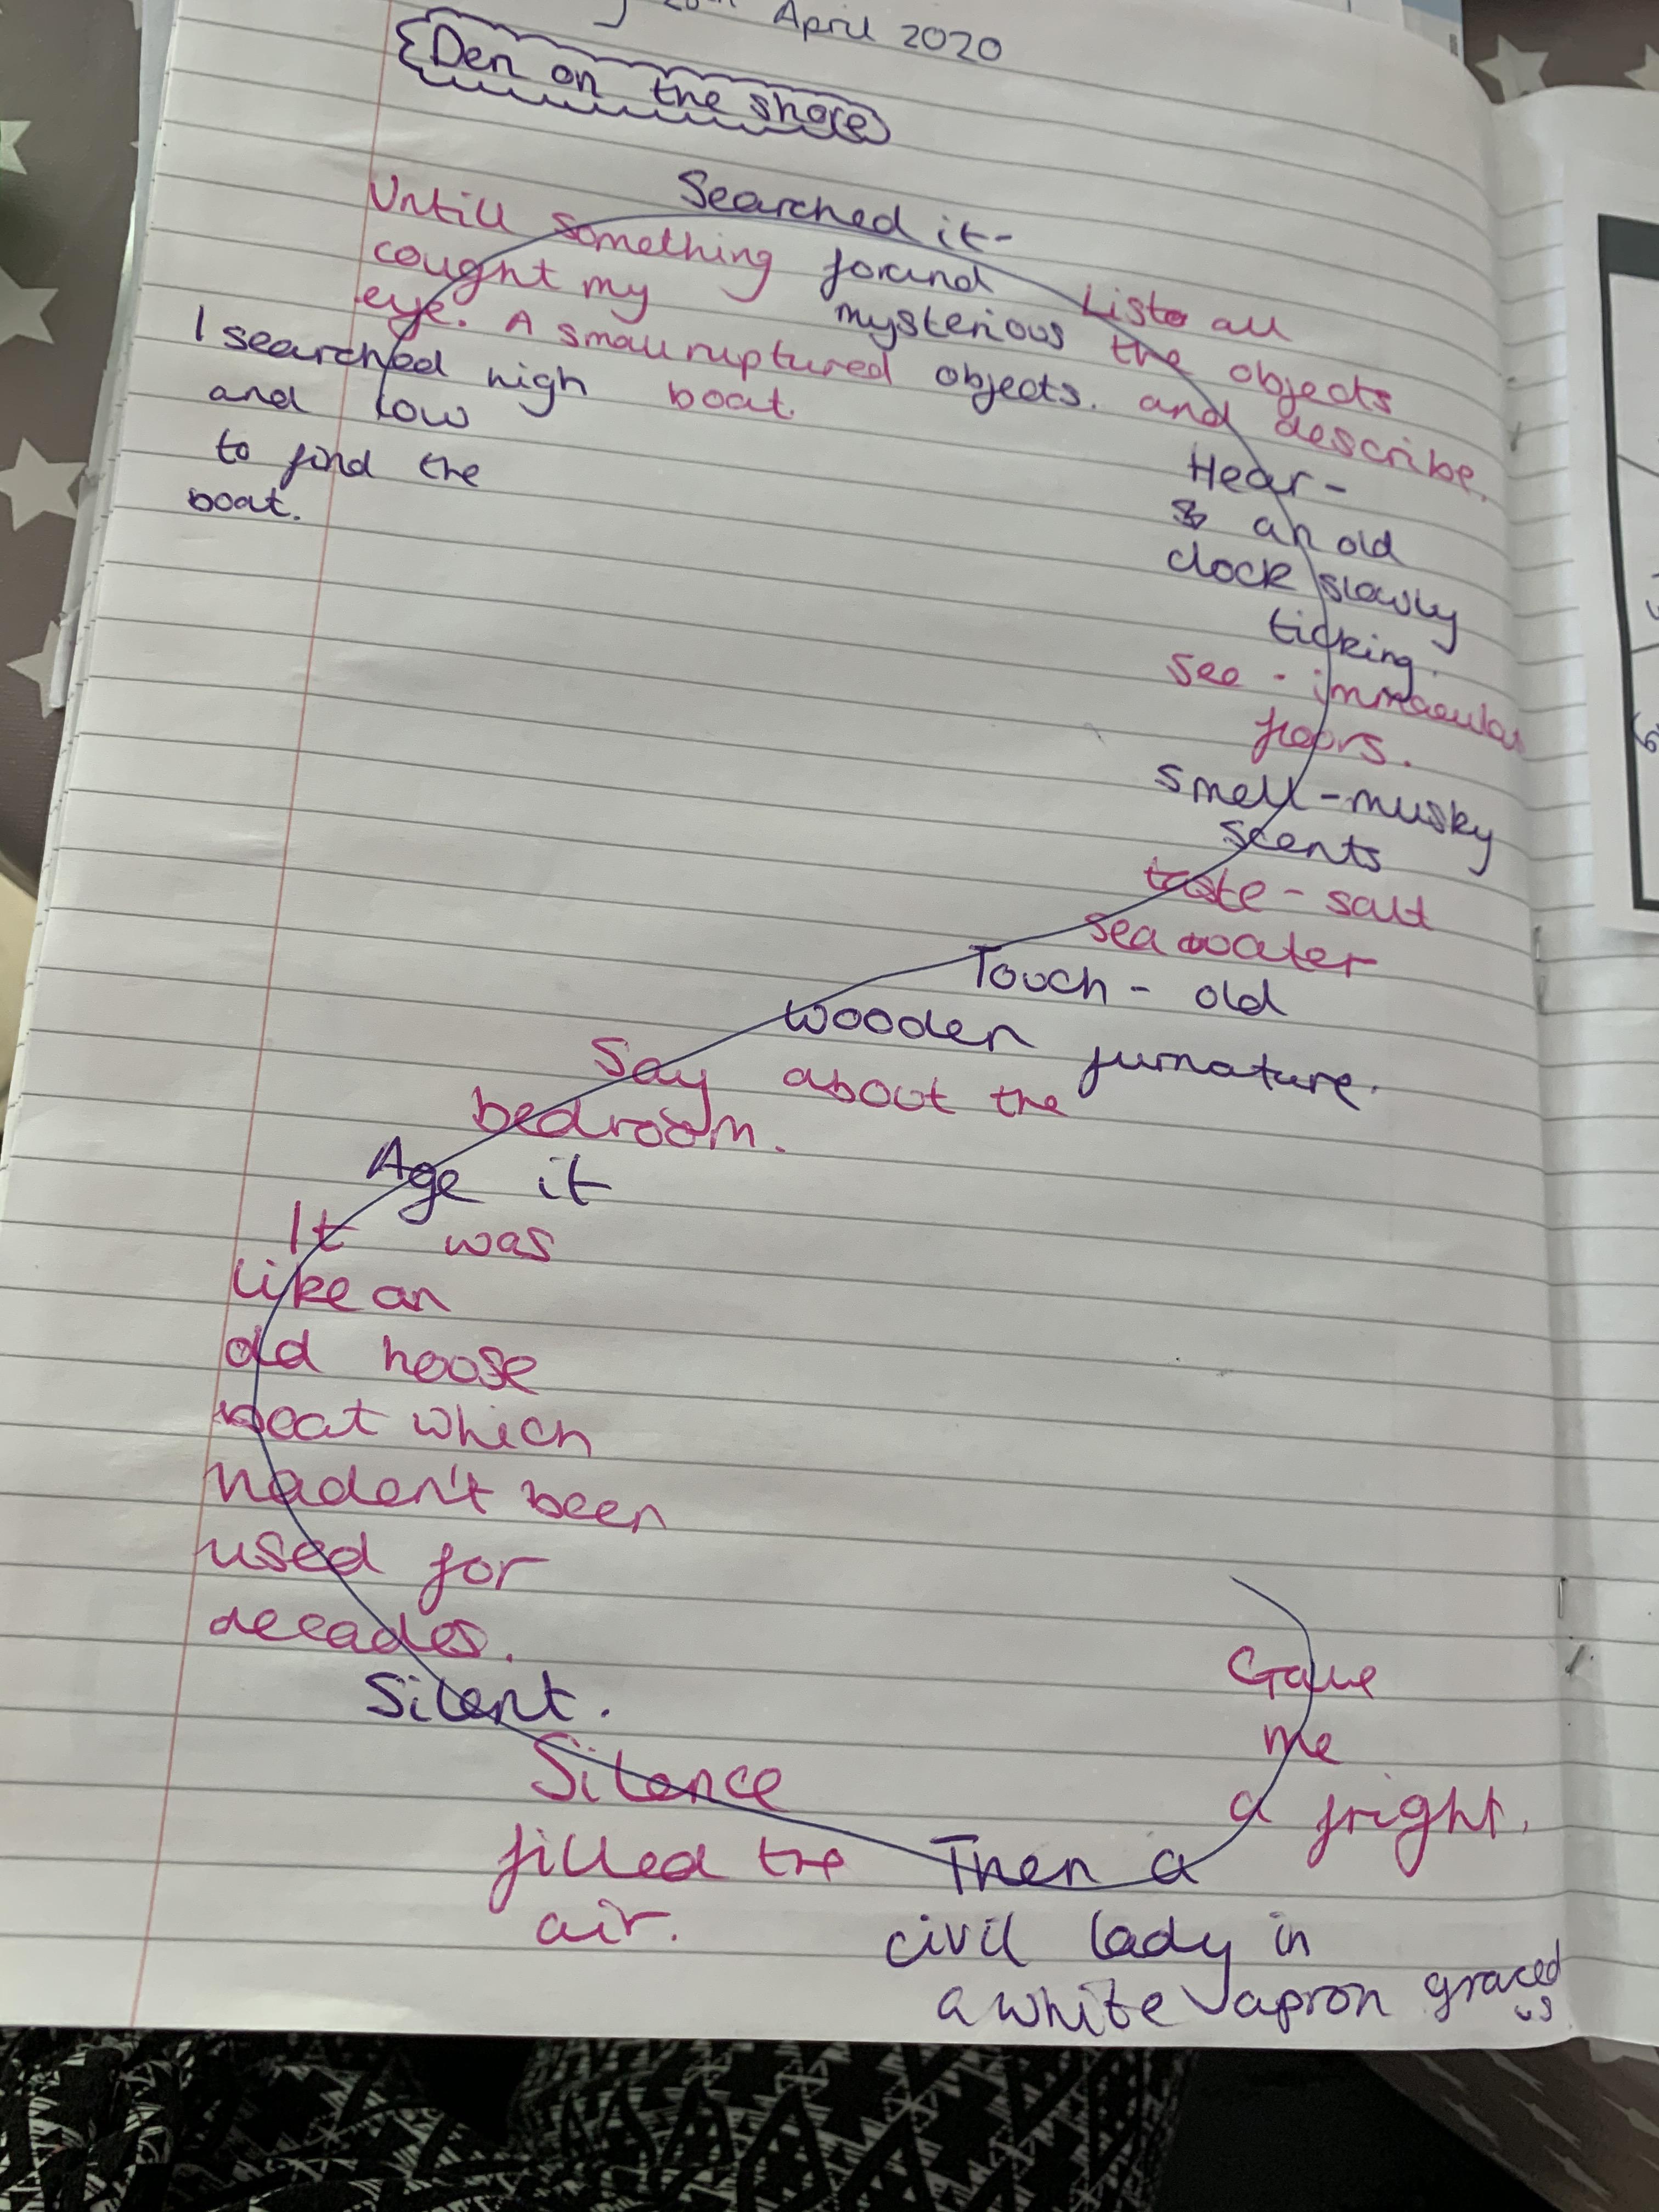 April 2020
Den on the shore
I searched high
and low
to find the
boat.
Untill something
cought my
eye. A small ruptured
boat.
Searched it-
found
mysterious
objects.
List all
the objects
and describe.
Hear-
an old
clock slowly
ticking.
See - immacula
floors.
Smell-musky
scents
taste- salt
sea water
Touch- old
wooden furnature.
Say about the
bedroom.
Age it
It was
like an
old house
boat which
haden't been
used for
decades.
Silent.
Silence
filled the
air.
Then a
civil lady in
a white apron graced
us
Gave
me
a fright.